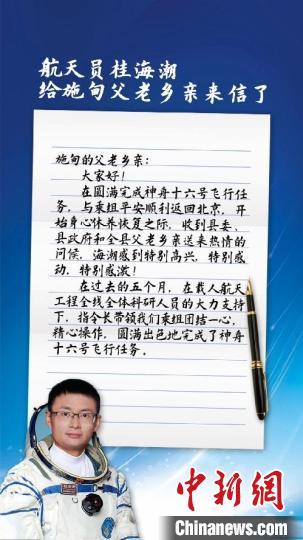 航天员桂海潮
给施甸父老乡亲来信了
施甸的父老乡亲:
大家好!
在圆满完成神舟十六号飞行任
务，与乘组平安顺利返回北京，开
始身心休养恢复之际，收到县委、
县政府和全县父老乡亲送来热情的
问候，海潮感到特别高兴，特别感
动，特别感激!
在过去的五个月，在载人航天
工程全线全体科研人员的大力支持
下，指令长带领我们乘组团结一心，
精心操作，圆满出色地完成了神舟
十六号飞行任务。
中新網
Chinanews.com